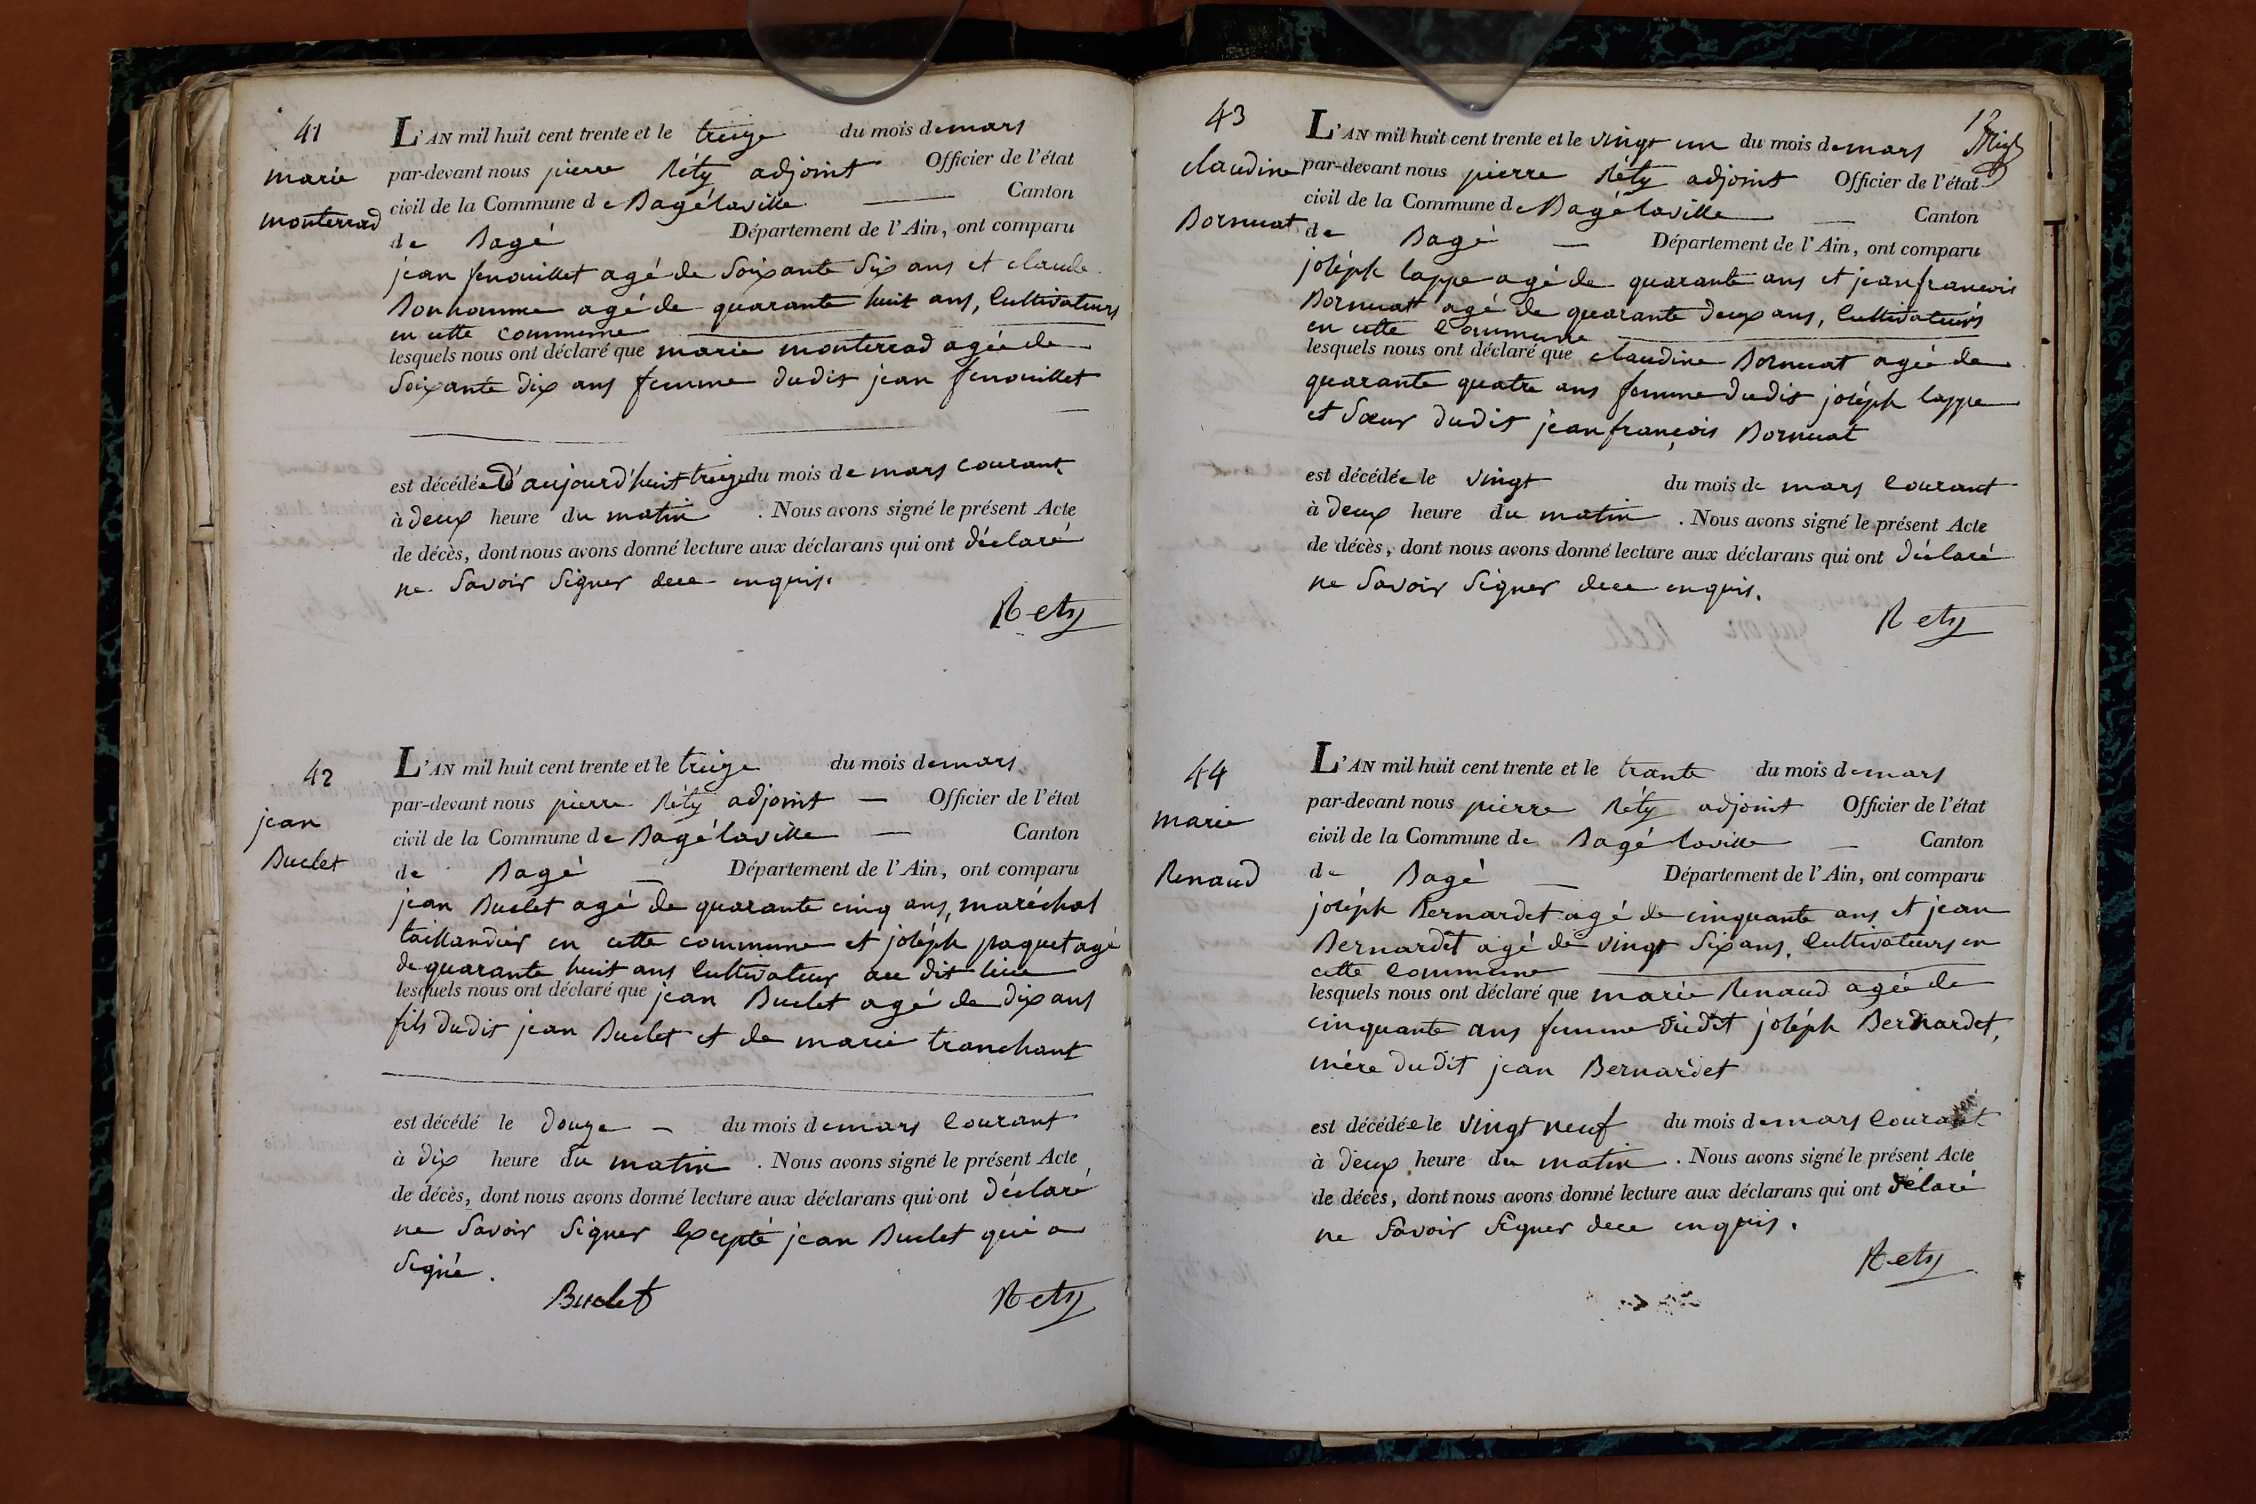 41
marie
monterrad
L'AN mil huit cent trente et le treize du mois de mars
par-devant nous pierre Réty adjoint Officier de l'état
civil de la Commune de Bagélaville Canton
de Bagé Département de l'Ain, ont comparu
jean fenouillet agé de Soixante Six ans et claude
Bonhomme agé de quarante huit ans, Cultivateurs
en cette commune
lesquels nous ont déclaré que marie monterrad agée de
Soixante dix ans femme dudit jean fenouillet
est décédée d'aujourd'huit treize du mois de mars courant
à deux heure du matin . Nous avons signé le présent Acte
de décès, dont nous avons donné lecture aux déclarans qui ont déclaré
ne Savoir Signer de ce enquis.
Rety
42
jean
Buclet
L'AN mil huit cent trente et le treize du mois de mars
par-devant nous pierre Réty adjoint — Officier de l'état
civil de la Commune de Bagélaville — Canton
de Bagé — Département de l'Ain, ont comparu
jean Buclet agé de quarante cinq ans, maréchal
taillandier en cette commune et joséph paquet agé
de quarante huit ans Cultivateur au dit lieu
lesquels nous ont déclaré que jean Buclet agé de dix ans
fils dudit jean Buclet et de marie tranchant
est décédé le douze — du mois de mars Courant
à dix heure du matin . Nous avons signé le présent Acte
de décès, dont nous avons donné lecture aux déclarans qui ont déclaré
ne Savoir Signer Excepté jean Buclet qui a
Signé.
Buclet Rety
43
claudine
Bornuat
L'AN mil huit cent trente et le vingt un du mois de mars
par-devant nous pierre Réty adjoint Officier de l'état
civil de la Commune de Bagélaville — Canton
de Bagé — Département de l'Ain, ont comparu
joséph lappe agé de quarante ans et jean francois
Bornuat agé de quarante deux ans, Cultivateurs
en cette Commune
lesquels nous ont déclaré que claudine Bornuat agée de
quarante quatre ans femme dudit joséph lappe
et Sœur dudit jean françois Bornuat
est décédée le vingt du mois de mars Courant
à deux heure du matin . Nous avons signé le présent Acte
de décès, dont nous avons donné lecture aux déclarans qui ont déclaré
ne Savoir Signer de ce enquis.
Rety
44
marie
Renaud
L'AN mil huit cent trente et le trante du mois de mars
par-devant nous pierre Réty adjoint Officier de l'état
civil de la Commune de Bagélaville — Canton
de Bagé — Département de l'Ain, ont comparu
joséph Bernardet agé de cinquante ans et jean
Bernardet agé de vingt Six ans, Cultivateurs en
cette Commune
lesquels nous ont déclaré que marie Renaud agée de
cinquante ans femme dudit joséph Bernardet,
mère dudit jean Bernardet
est décédée le vingt neuf du mois de mars Courant
à deux heure du matin . Nous avons signé le présent Acte
de décès, dont nous avons donné lecture aux déclarans qui ont délaré
ne Savoir Signer de ce enquis.
Rety